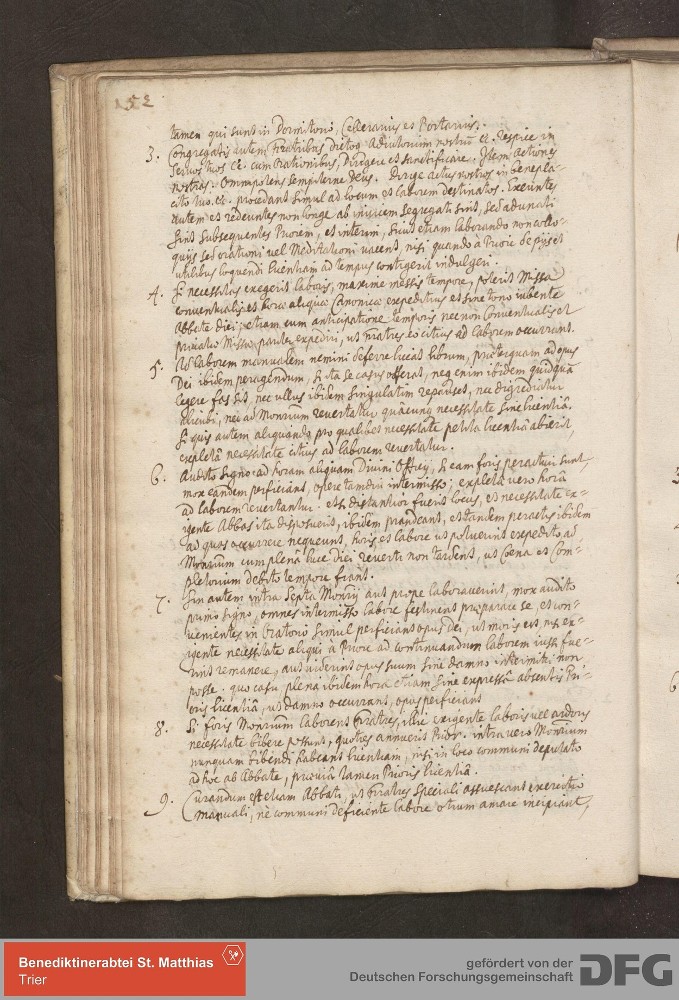 152
tamen qui sunt in Dormitorio, Cellerarius et Portarius.
3. Congregatis autem Fratribus dictoq Adiutorium nostrum &. respice in
servos tuos &. cum Orationibus, Dirigere et sanctificare. Item actiones
nostras. Omnipotens sempiterne Deus. Dirige actus nostros in benepla-
cito tuo. &. procedant simul ad locum et laborem destinatos. Exeuntes
autem et redeuntes non longe ab invicem segregati sint, sed adunati
sint subsequentes Priorem, et interim, sicut etiam laborando non collo-
quijs sed orationi vel Meditationi vacent, nisi quando à Priore de
utilibus loquendi licentiam ad tempus contigerit indulgeri.
4. Si necessitas exegerit laboris, maxime messis tempore, poterit Missa
conventualis et hora aliqua Canonica expeditius et sine tono iubente
Abbate dici, etiam cum anticipatione temporis nec non Conventualis et
privatae Missae pariter expediri, ut fratres eo citius ad laborem occurrant.
5. Ad laborem manualem nemini deferre liceat librum, praeterquam ad opus
Dei ibidem peragendum, si ita se casus offerat, neq enim ibidem quidquã
legere fas sit, nec ullus ibidem singulatim repauset, nec digrediatur
alicubi, nec ad Monrium revertatur quacunq necessitate sine licentiâ.
Si quis autem aliquando pro qualibet necessitate petita licentiâ abierit,
expletâ necessitate citius ad laborem revertatur.
6. Audito signo ad horam aliquam Divini Officij, si eam foris peracturi sunt,
mox eandem perficiant, opere tamdiu intermisso; expletâ vero horâ
ad laborem revertantur. et si distantior fuerit locus, et necessitate ex-
igente Abbas ita disposuerit, ibidem prandeant, et tandem peractis ibidem
ad quas occurrere nequeunt, horis et labore ut potuerint expedito, ad
Monrium cum plena luce diei reverti non tardent, ut Coena et Com-
pletorium debito tempore fiant.
7. Sin autem intra septa Monrij aut prope laboraverint, mox audito
primo signo, omnes intermisso labore festinent praeparare se, et con-
venientes in Oratorio simul perficiant opus dei, ut moris est nisi ex-
igente necessitate aliqui à Priore ad continuandum laborem iussi fue-
rint remanere, aut viderint opus suum sine damno intermitti non
posse. quo casu, plena ibidem hora etiam sine expressâ absentis Pri-
oris licentiâ, ut damno occurrant, opus perficiant
8. Si foris Monrium laborent fratres, illic exigente laboris vel ardoris
necessitate bibere possunt, quoties annuerit Prior. intra vero Monrium
nunquam bibendi habeant licentiam, nisi in loco communi deputato
ad hoc ab Abbate, praevia tamen Prioris licentiâ.
9. Curandum est etiam Abbati, ut fratres speciali assuescant exercitio
manuali, nè communi deficiente labore otium amare incipiant,
Benediktinerabtei St. Matthias
Trier
gefördert von der
Deutschen Forschungsgemeinschaft
DFG